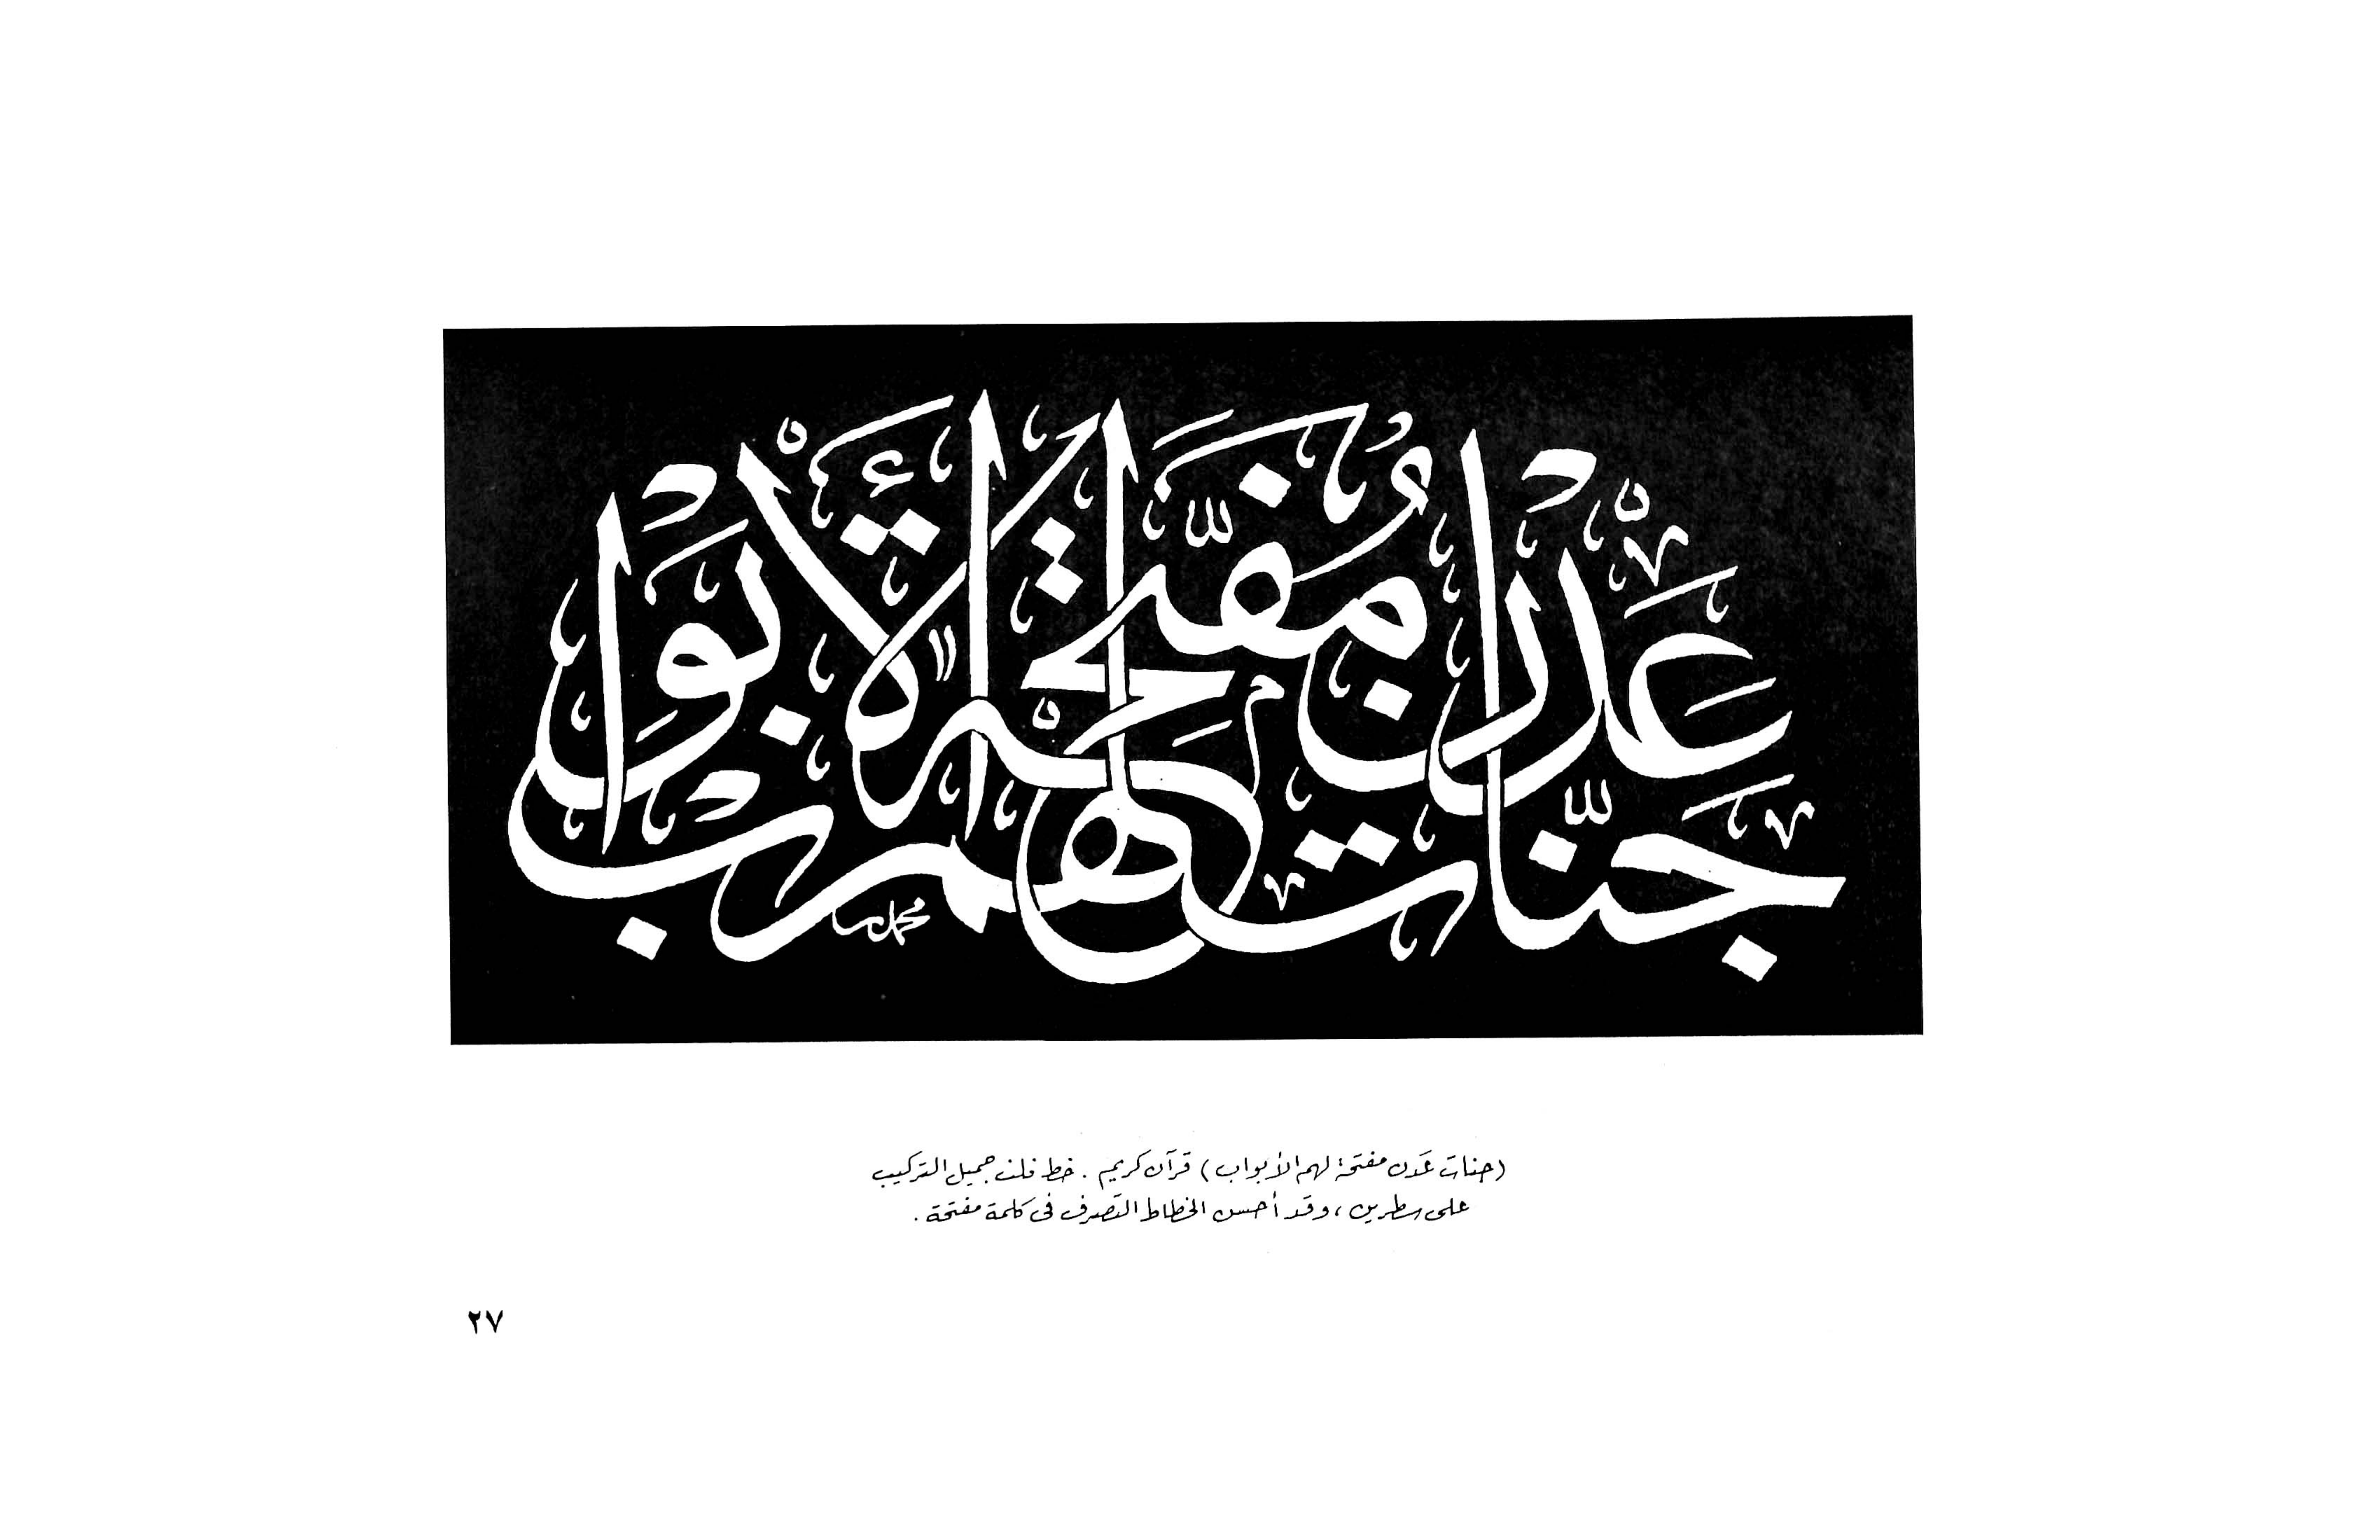 جَنَّاتِ عَدْنٍ مُفَتَّحَةً لَهُمُ الْأَبْوَابُ
(جنات عدن مفتحة لهم الأبواب) قرآن كريم . خط ثلث جميل التركيب
على سطرين ، وقد أحسن الخطاط التصرف في كلمة مفتحة .
٢٧